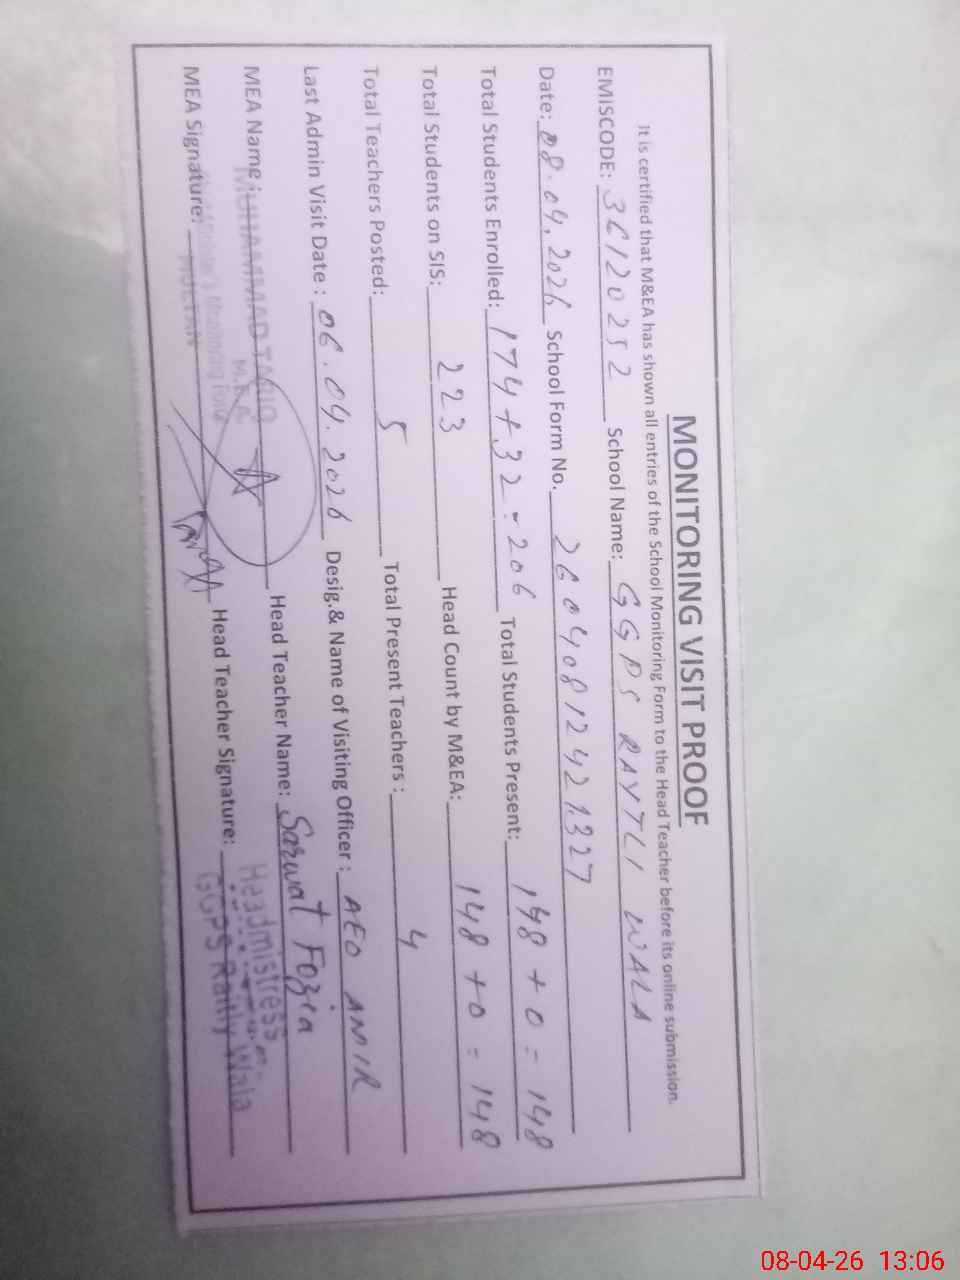 MONITORING VISIT PROOF
It is certified that M&EA has shown all entries of the School Monitoring Form to the Head Teacher before its online submission.
EMISCODE: 36120252 School Name: GGPS RAYTLI WALA
Date: 08.04.2026 School Form No. 26040812421327
Total Students Enrolled: 174+32-206 Total Students Present: 148+0=148
Total Students on SIS: 223 Head Count by M&EA: 148+0=148
Total Teachers Posted: 5 Total Present Teachers: 4
Last Admin Visit Date: 06.04.2026 Desig.& Name of Visiting Officer: AEO AMIR
MEA Name: MUHAMMAD TARIQ M.E.A Head Teacher Name: Sarwat Fozia
MEA Signature: Monitoring Force MULTAN Head Teacher Signature: Headmistress GGPS Raitly Wala
08-04-26 13:06